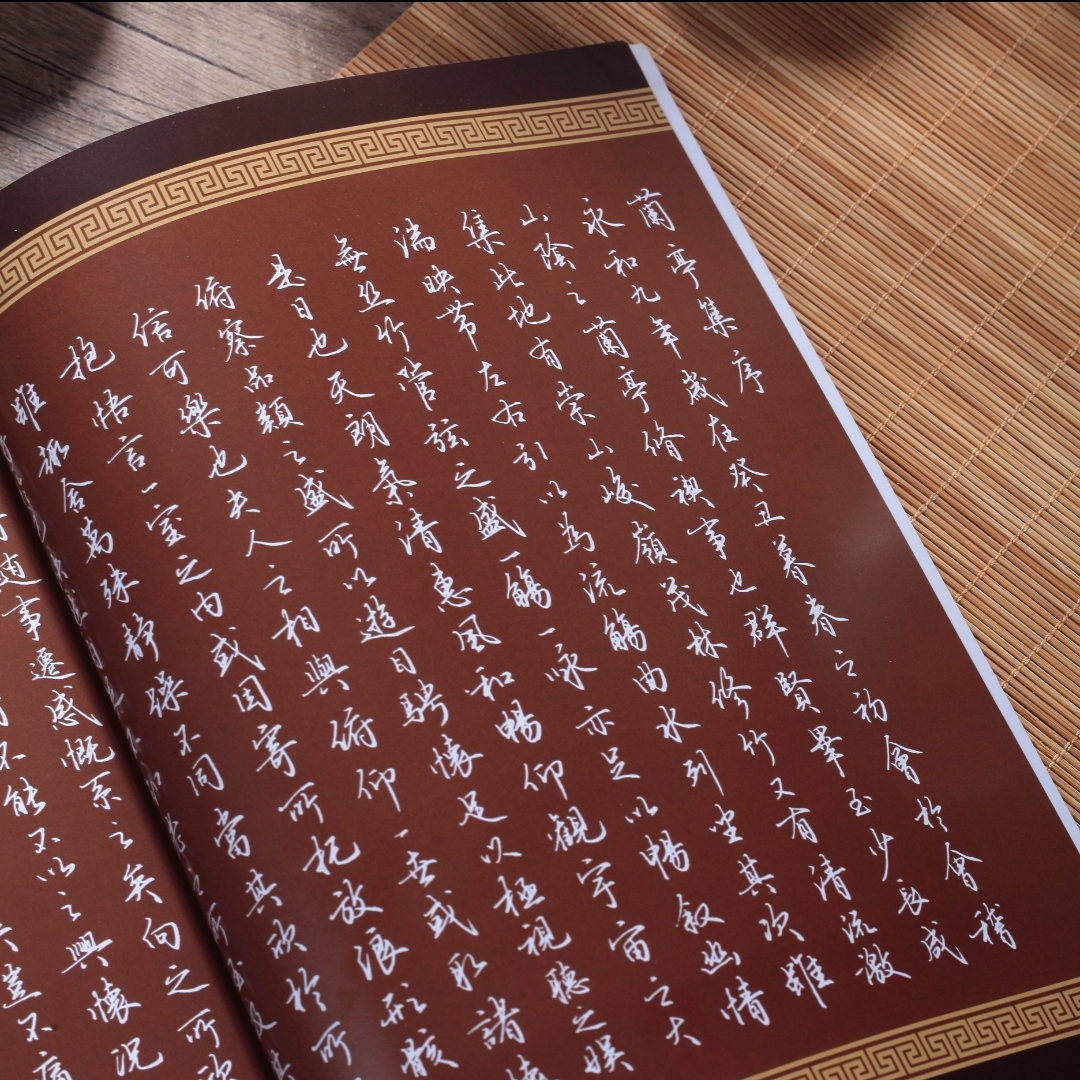 蘭亭集序
永和九年歲在癸丑暮春之初會於會稽
山陰之蘭亭脩禊事也群賢畢至少長咸
集此地有崇山峻嶺茂林修竹又有清流激
湍映帶左右引以為流觴曲水列坐其次雖
無絲竹管弦之盛一觴一詠亦足以暢敘幽情
是日也天朗氣清惠風和暢仰觀宇宙之大
俯察品類之盛所以遊目騁懷足以極視聽之娛
信可樂也夫人之相與俯仰一世或取諸懷
抱悟言一室之內或因寄所托放浪形骸
雖趣舍萬殊靜躁不同當其欣於所
隨事遷感慨系之矣向之所欣
不能不以之興懷況
豈不痛